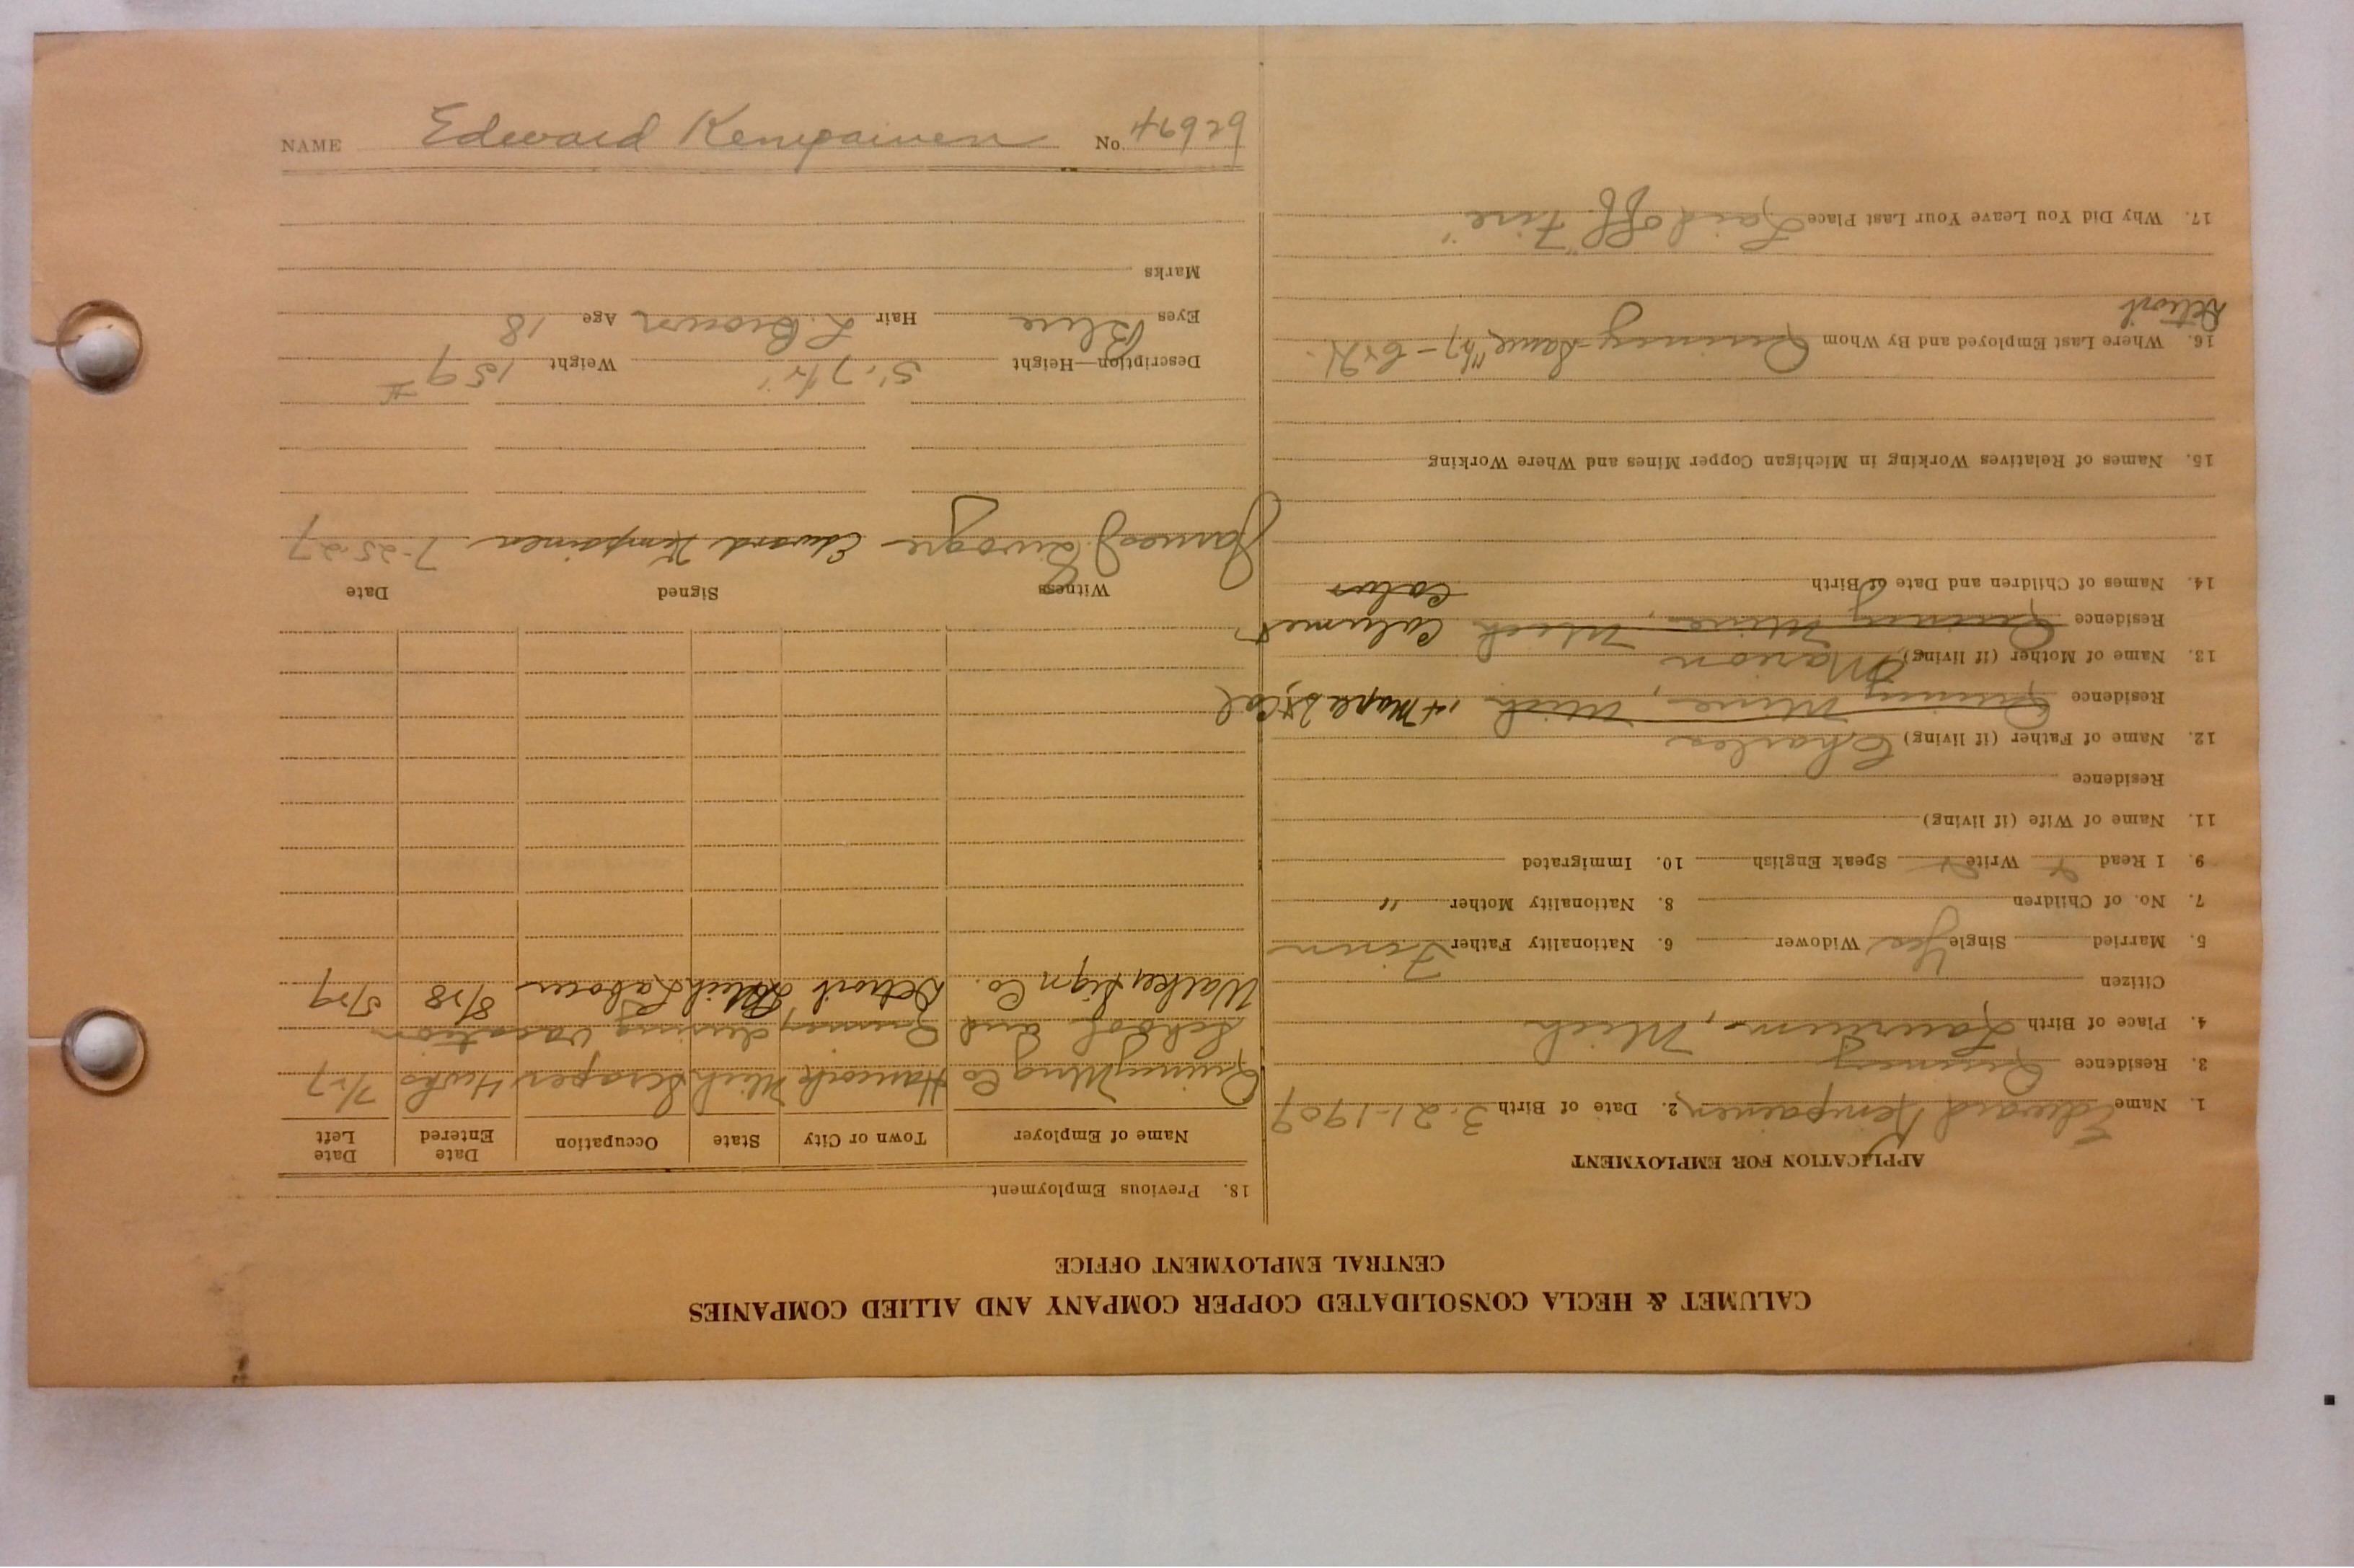 CALUMET & HECLA CONSOLIDATED COPPER COMPANY AND ALLIED COMPANIES
CENTRAL EMPLOYMENT OFFICE
APPLICATION FOR EMPLOYMENT
1. Name Edward Kempainen 2. Date of Birth 3-21-1909
3. Residence Quincy
4. Place of Birth Laurium, Mich
Citizen
5. Married Single Yes Widower 6. Nationality Father Finn
7. No. of Children 8. Nationality Mother "
9. I Read Write Speak English 10. Immigrated
11. Name of Wife (if living)
Residence
12. Name of Father (if living) Charles
Residence Quincy Mine, Mich
13. Name of Mother (if living) Marion
Residence Quincy Mine, Mich Calumet
14. Names of Children and Date of Birth
15. Names of Relatives Working in Michigan Copper Mines and Where Working
16. Where Last Employed and By Whom Quincy
Detroit
17. Why Did You Leave Your Last Place Laid off "Fire"
18. Previous Employment
Name of Employer Town or City State Occupation Date Entered Date Left
Quincy Mng Co Hancock Mich Scraper 4 wks 7/27
School and Quincy during vacation
Walker Sign Co. Detroit Mich Laborer 8/28 5/29
Witness Signed Date
Edward Kempainen 7-25-27
Description—Height 5' 7 1/2" Weight 159 #
Eyes Blue Hair L. Brown Age 18
Marks
NAME Edward Kempainen No.